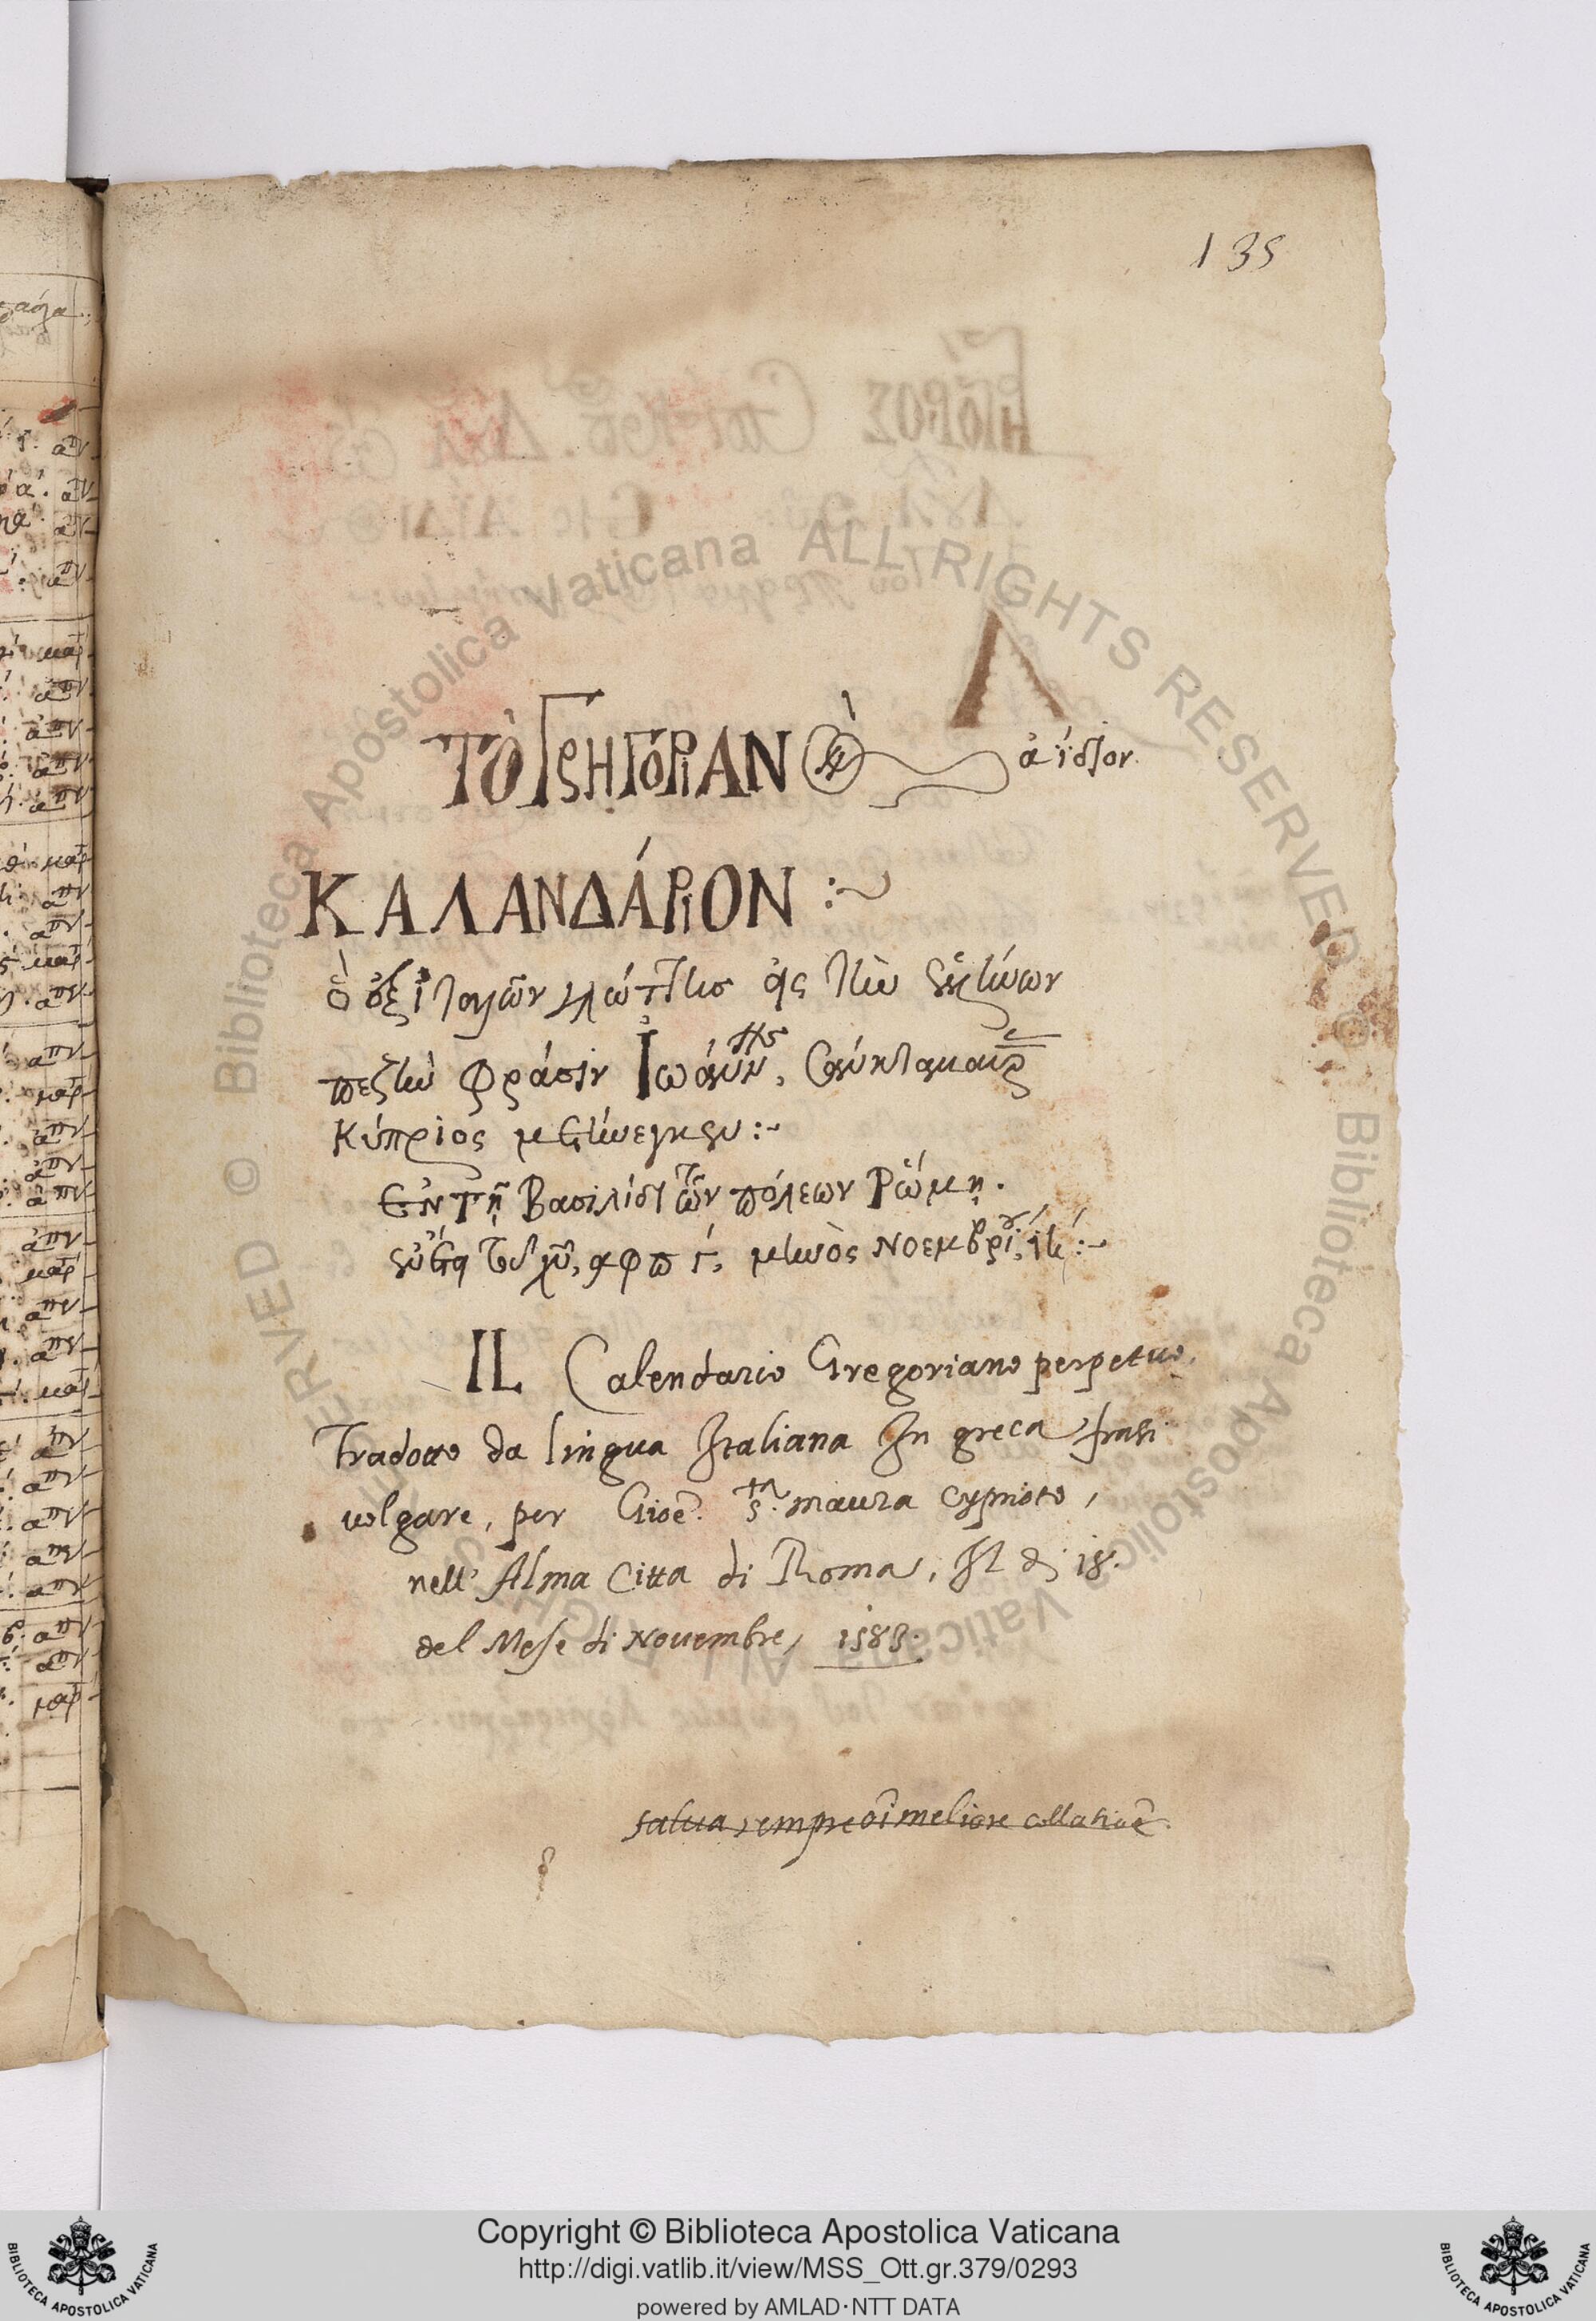 135
ΤῸ ΓΡΗΓΟΡΙΑΝὸν ἀΐδιον.
ΚΑΛΑΝΔΆΡΙΟΝ :~
ὃ ἐξ ἰταλῶν γλώττης εἰς τὴν ἑλλήνων
πεζὴν φράσιν Ἰωάννης,
κύπριος μετήνεγκεν :~
ἐν τῇ βασιλίδι τῶν πόλεων Ῥώμῃ.
αφπγ, μηνὸς νοεμβρίου, ιη :~
IL Calendario Gregoriano perpetuo,
Tradotto da lingua Italiana In greca frasi
volgare, per Gioẽ. S.ta maura cyprioto,
nell' Alma Citta di Roma, Il dì 18.
del Mese di Novembre, 1583.
salva sempre di meliore collatioẽ.
Biblioteca Apostolica Vaticana ALL RIGHTS RESERVED ©
Copyright © Biblioteca Apostolica Vaticana
http://digi.vatlib.it/view/MSS_Ott.gr.379/0293
powered by AMLAD·NTT DATA
BIBLIOTECA APOSTOLICA VATICANA
BIBLIOTECA APOSTOLICA VATICANA